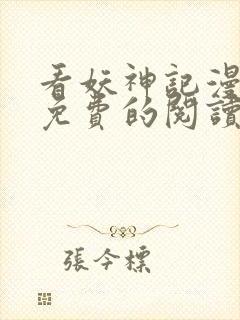 看妖神記漫
免費的閱讀
張今標